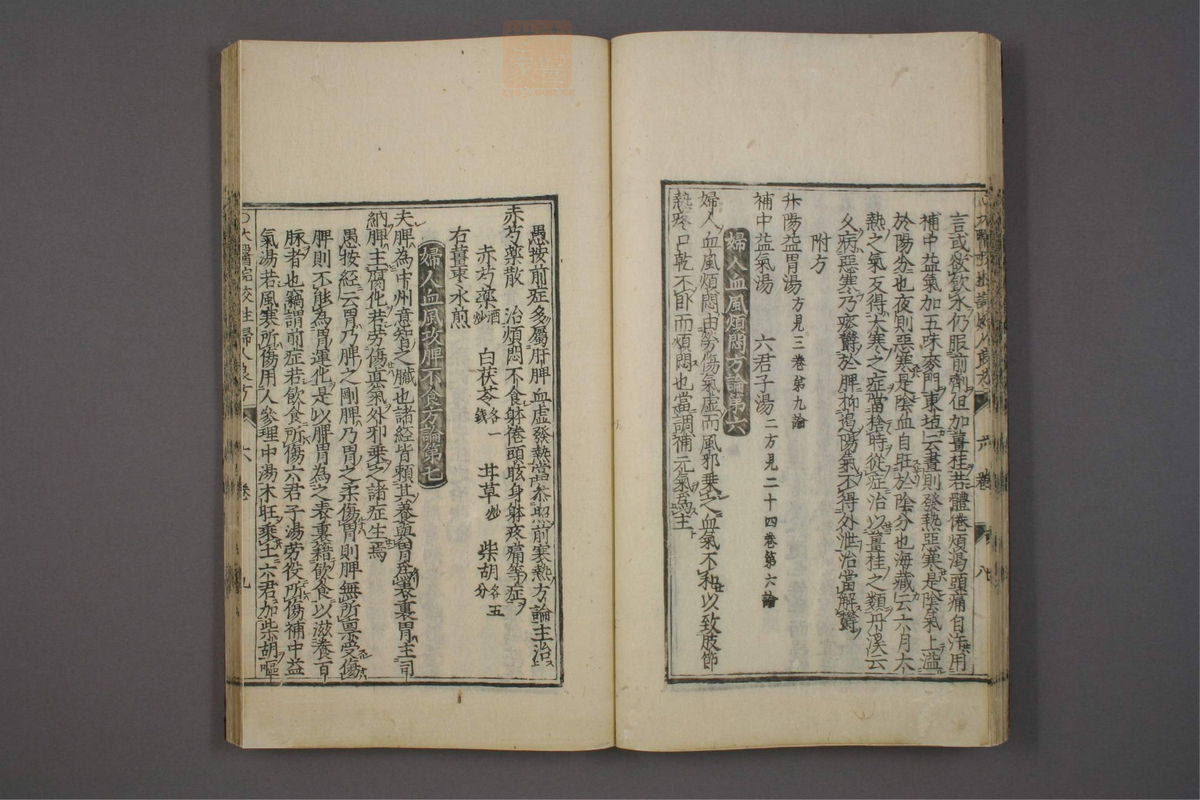 言或欲飲水仍服前劑但加薑桂若體倦煩渴頭痛自汗用
補中益氣加五味麥門東垣云晝則發熱惡寒是陰氣上溢
於陽分也夜則惡寒是陰血自旺於陰分也海藏云六月大
熱之氣反得大寒之症當捨時從症治以薑桂之類丹溪云
久病惡寒乃痰鬱於脾抑遏陽氣不得外泄治當解鬱
附方
升陽益胃湯方見三卷第九論
補中益氣湯 六君子湯二方見二十四卷第六論
婦人血風煩悶方論第六
婦人血風煩悶由勞傷氣虛而風邪乘之血氣不和以致肢節
熱疼口乾不卧而煩悶也當調補元氣爲主
六卷
八
愚按前症多屬肝脾血虛發熱當參照前寒熱方論主治
赤芍藥散 治煩悶不食躰倦頭眩身躰疼痛等症
赤芍藥酒炒 白茯苓各一錢 甘草炒 柴胡各五分
右薑棗水煎
婦人血風攻脾不食方論第七
夫脾為中州意智之臟也諸經皆賴其養與胃爲表裏胃主司
納脾主腐化若勞傷真氣外邪乘之諸症生焉
愚按經云胃乃脾之剛脾乃胃之柔傷胃則脾無所禀受傷
脾則不能為胃運化是以脾胃為之表裏藉飲食以滋養百
脉者也竊謂前症若飲食所傷六君子湯勞役所傷補中益
氣湯若風寒所傷用人參理中湯木旺乘土六君加柴胡嘔
太醫院校註婦人良方
六卷
九